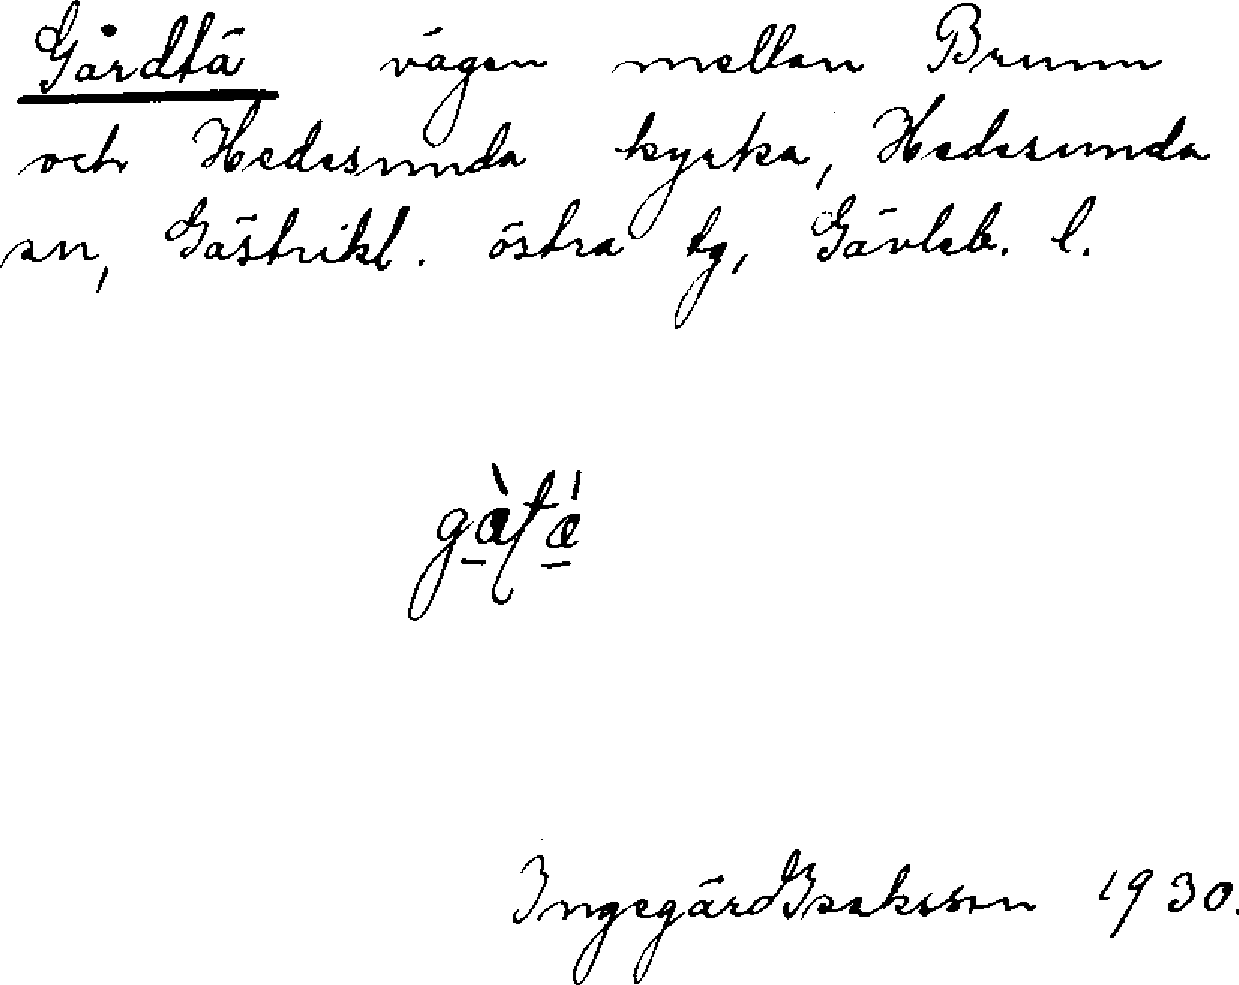 Gårdtä vägen mellan Brunn
och Hedesunda kyrka, Hedesunda
sn, Gästrikl. östra tg, Gävleb. l.
Ingegärd Isaksson 1930.